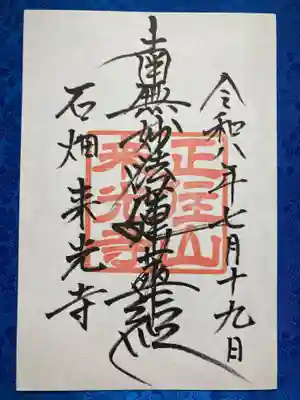 令和八年七月十九日
南無妙法蓮華経
石畑 来光寺
正住山
来光寺